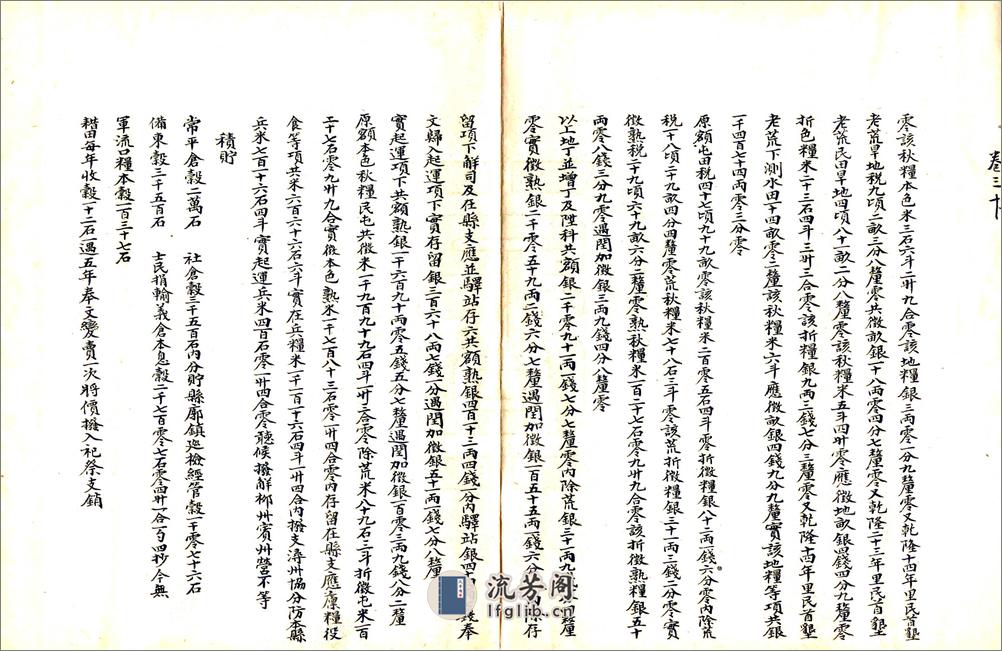 卷三十
零該秋糧本色米三石六斗二升九合零該地糧銀三兩零二分九釐零又乾隆十四年里民首墾
老荒旱地稅九頃二畝三分八釐零共徵畝銀一十八兩零四分七釐零又乾隆二十三年里民百墾
老荒民田旱地四頃八十一畝二分八釐零該秋糧米五斗四升零應徵地畝銀四錢四分九釐零
折色糧米二十三石四斗三升三合零該折糧銀九兩三錢七分三釐零又乾隆十四年里民首墾
老荒下測水田十四畝零二釐該秋糧米六斗應徵畝銀四錢九分九釐實該地糧等項共銀
一千四百七十四兩零三分零
原額屯田稅四十七頃九十九畝零該秋糧米二百零五石四斗零折徵糧銀八十二兩一錢六分零內除荒
稅一十八頃二十九畝四分四釐零荒秋糧米七十八石三斗零該荒折徵糧銀三十一兩三錢二分零實
徵熟稅二十九頃六十九畝六分二釐零熟秋糧米一百二十七石零九升九合零該折徵熟糧銀五十
兩零八錢三分九零遇閏加徵銀三兩九錢四分八釐零
以上地丁並增丁及陞科共額銀二千零九十一兩一錢七分七釐零內除荒銀三十一兩九 四釐
零實徵熟銀二千零五十九兩二錢六分七釐遇閏加徵銀一百五十五兩一錢六分 內除存
留項下解司及在縣支應並驛站存六共額熟銀四百一十二兩四錢一分內驛站銀四十 錢奉
文歸入起運項下實存留銀三百六十八兩七錢一分遇閏加徵銀五十一兩一錢七分八釐
實起運項下共額熟銀一千六百九十兩零五錢五分七釐遇閏加徵銀一百零三兩九錢八分二釐
原額本色秋糧民屯共徵米二千九百九十九石四斗一升三合零除荒米八十九石三斗折徵屯米一百
二十七石零九升九合實徵本色熟米二千七百八十三石零一升四合零內存留在縣支應廩糧役
食等項共米六百六十六石六斗實在兵糧米二千一百一十六石四斗一升四合內撥支潯州協分防本縣
兵米七百一十六石四斗實起運兵米四百石零一升四合零聽候撥解柳州賓州營不等
積貯
常平倉穀二萬石　社倉穀三千五百石內分貯縣廓鎮巡檢經管穀一千零七十六石
備東穀三千五百石　士民捐輸義倉本息穀二千七百零七石零四升一合一勺四抄今無
軍流口糧本穀一百三十七石
耤田每年收穀一十二石一遇五年奉文變賣一次將價撥入祀祭支銷
流芳阁
lfglib.cn